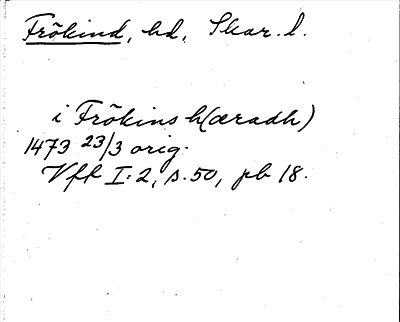 Frökind, hd, Skar. l.
i Frökins h(æradh)
1473 23/3 orig.
Vff I:2, s. 50, pb 18.